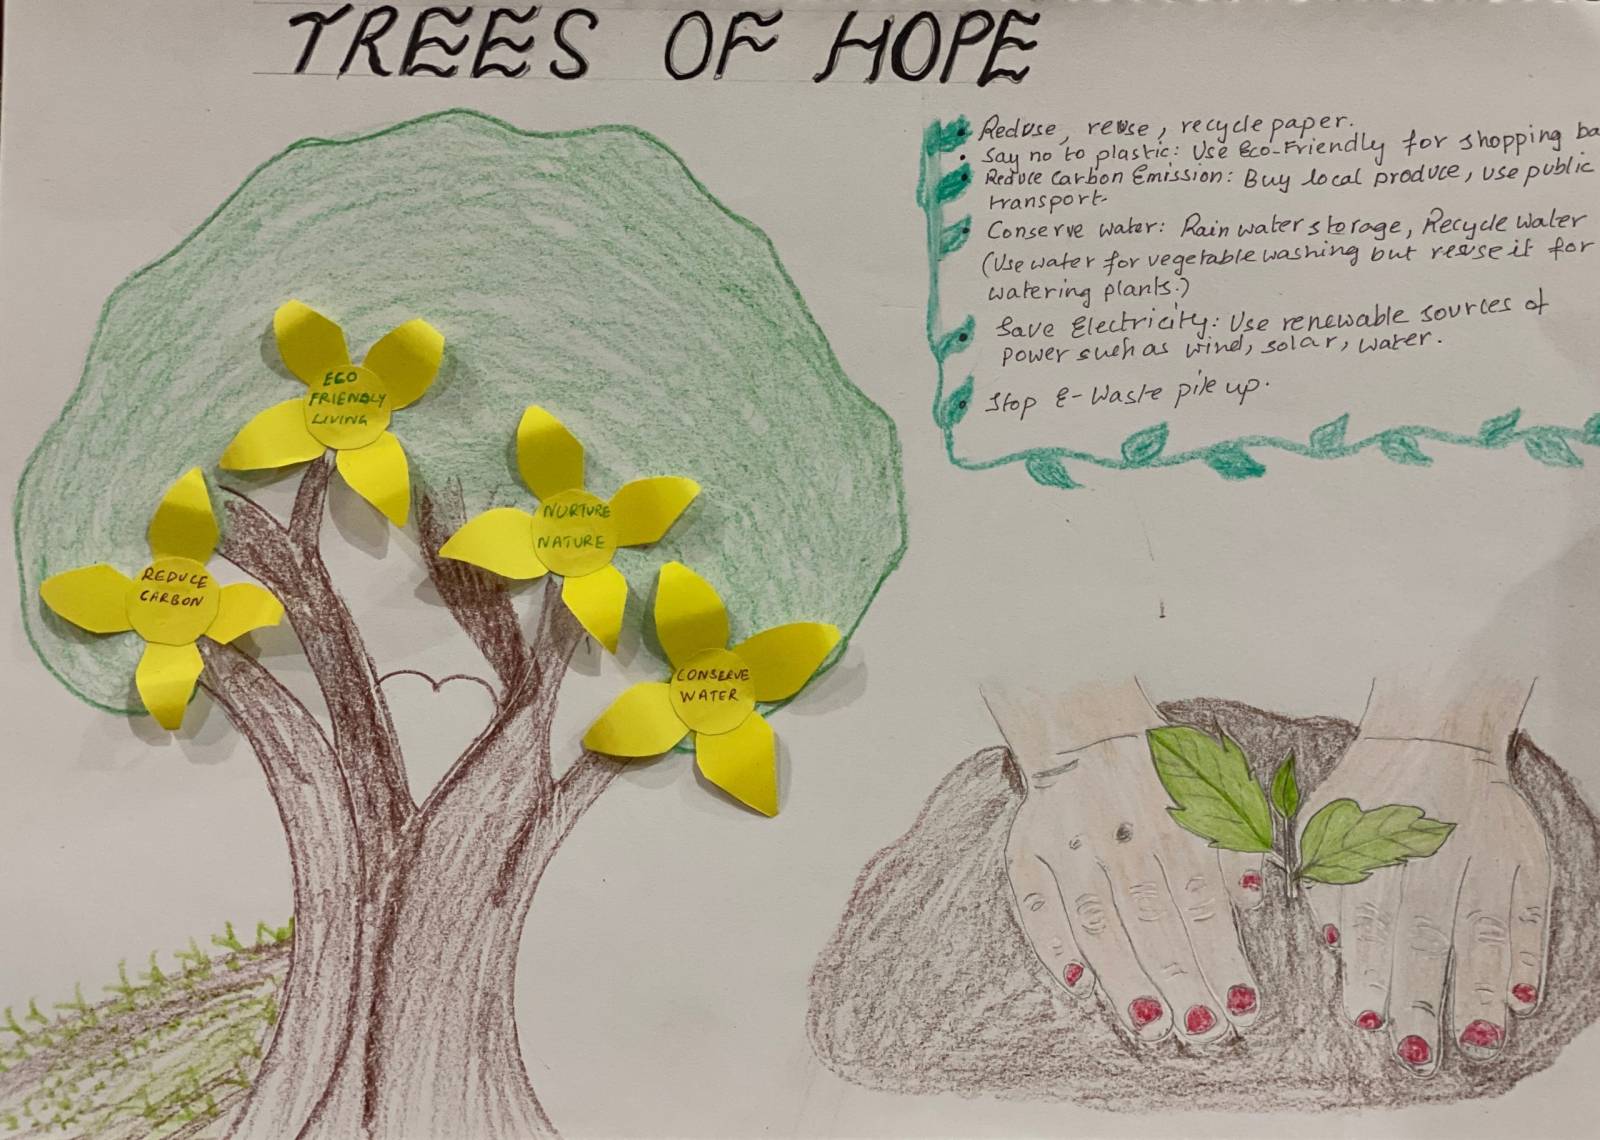 TREES OF HOPE
Reduse, reuse, recycle paper.
Say no to plastic: Use Eco-Friendly for shopping ba
Reduce Carbon Emission: Buy local produce, use public
transport.
Conserve water: Rain water storage, Recycle water
(Use water for vegetable washing but reuse it for
watering plants.)
Save Electricity: Use renewable sources of
power such as wind, solar, water.
Stop E-Waste pile up.
ECO
FRIENDLY
LIVING
NURTURE
NATURE
REDUCE
CARBON
CONSERVE
WATER